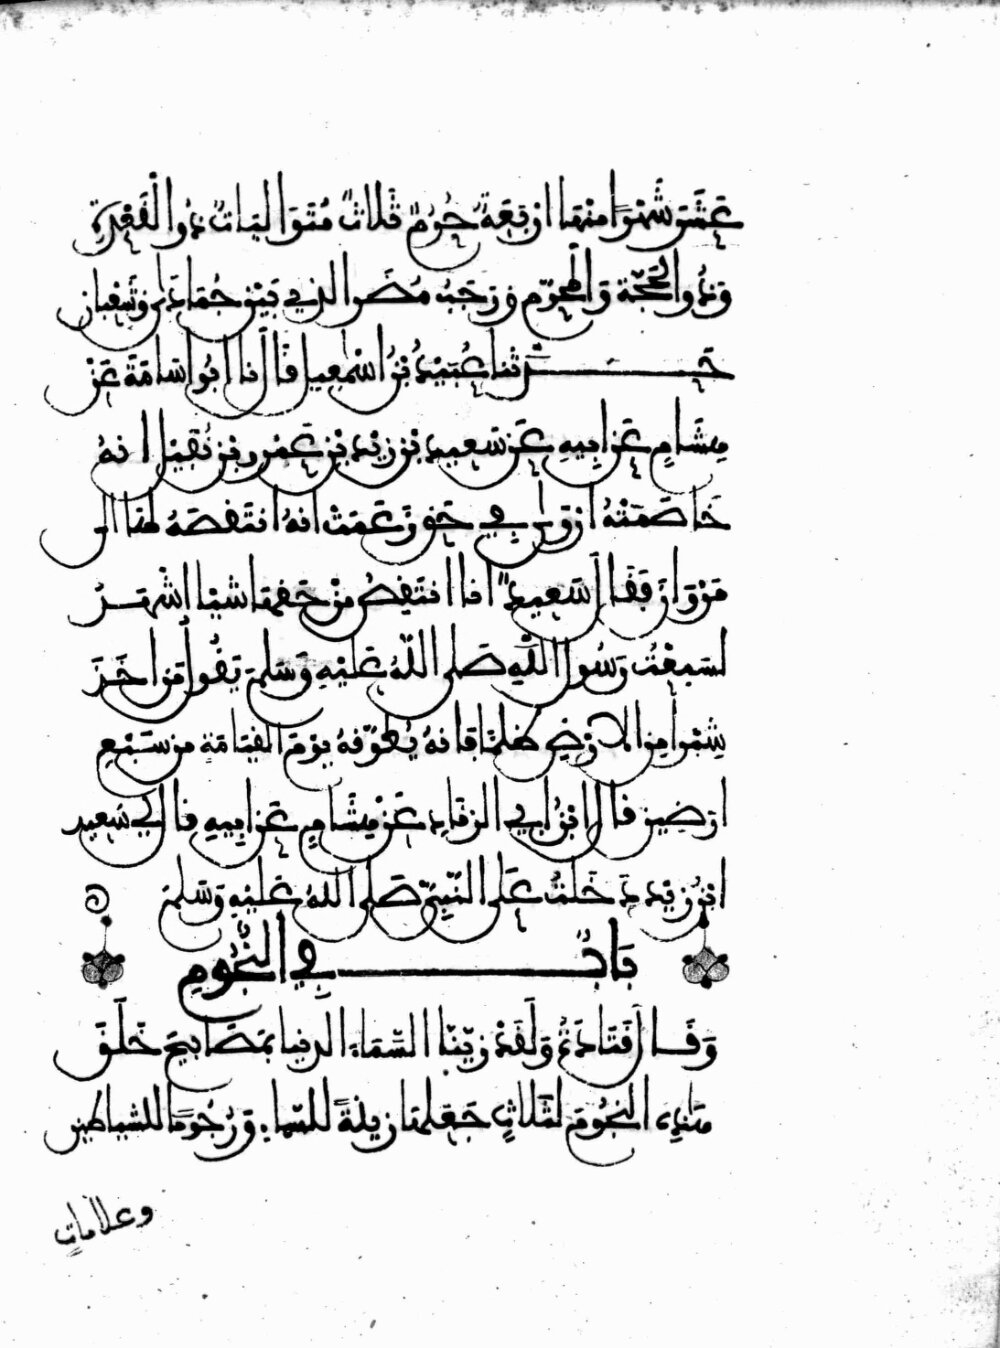 عَشَرَ شَهْرًا مِنْهَا أَرْبَعَةٌ حُرُمٌ ثَلَاثٌ مُتَوَالِيَاتٌ ذُو الْقَعْدَةِ
وَذُو الْحِجَّةِ وَالْمُحَرَّمُ وَرَجَبُ مُضَرَ الَّذِي بَيْنَ جُمَادَى وَشَعْبَانَ
حَدَّثَنَا عُبَيْدُ بْنُ إِسْمَاعِيلَ قَالَ نَا أَبُو أُسَامَةَ عَنْ
هِشَامٍ عَنْ أَبِيهِ عَنْ سَعِيدِ بْنِ زَيْدِ بْنِ عَمْرِو بْنِ نُفَيْلٍ أَنَّهُ
خَاصَمَتْهُ أَرْوَى فِي حَقٍّ زَعَمَتْ أَنَّهُ انْتَقَصَهُ لَهَا إِلَى
مَرْوَانَ فَقَالَ سَعِيدٌ أَنَا أَنْتَقِصُ مِنْ حَقِّهَا شَيْئًا أَشْهَدُ
لَسَمِعْتُ رَسُولَ اللَّهِ صَلَّى اللَّهُ عَلَيْهِ وَسَلَّمَ يَقُولُ مَنْ أَخَذَ
شِبْرًا مِنَ الْأَرْضِ ظُلْمًا فَإِنَّهُ يُطَوَّقُهُ يَوْمَ الْقِيَامَةِ مِنْ سَبْعِ
أَرَضِينَ قَالَ ابْنُ أَبِي الزِّنَادِ عَنْ هِشَامٍ عَنْ أَبِيهِ قَالَ لِي سَعِيدُ
ابْنُ زَيْدٍ دَخَلْتُ عَلَى النَّبِيِّ صَلَّى اللَّهُ عَلَيْهِ وَسَلَّمَ
بَابٌ فِي النُّجُومِ
وَقَالَ قَتَادَةُ وَلَقَدْ زَيَّنَّا السَّمَاءَ الدُّنْيَا بِمَصَابِيحَ خَلَقَ
هَذِهِ النُّجُومَ لِثَلَاثٍ جَعَلَهَا زِينَةً لِلسَّمَاءِ وَرُجُومًا لِلشَّيَاطِينِ
وعلامات